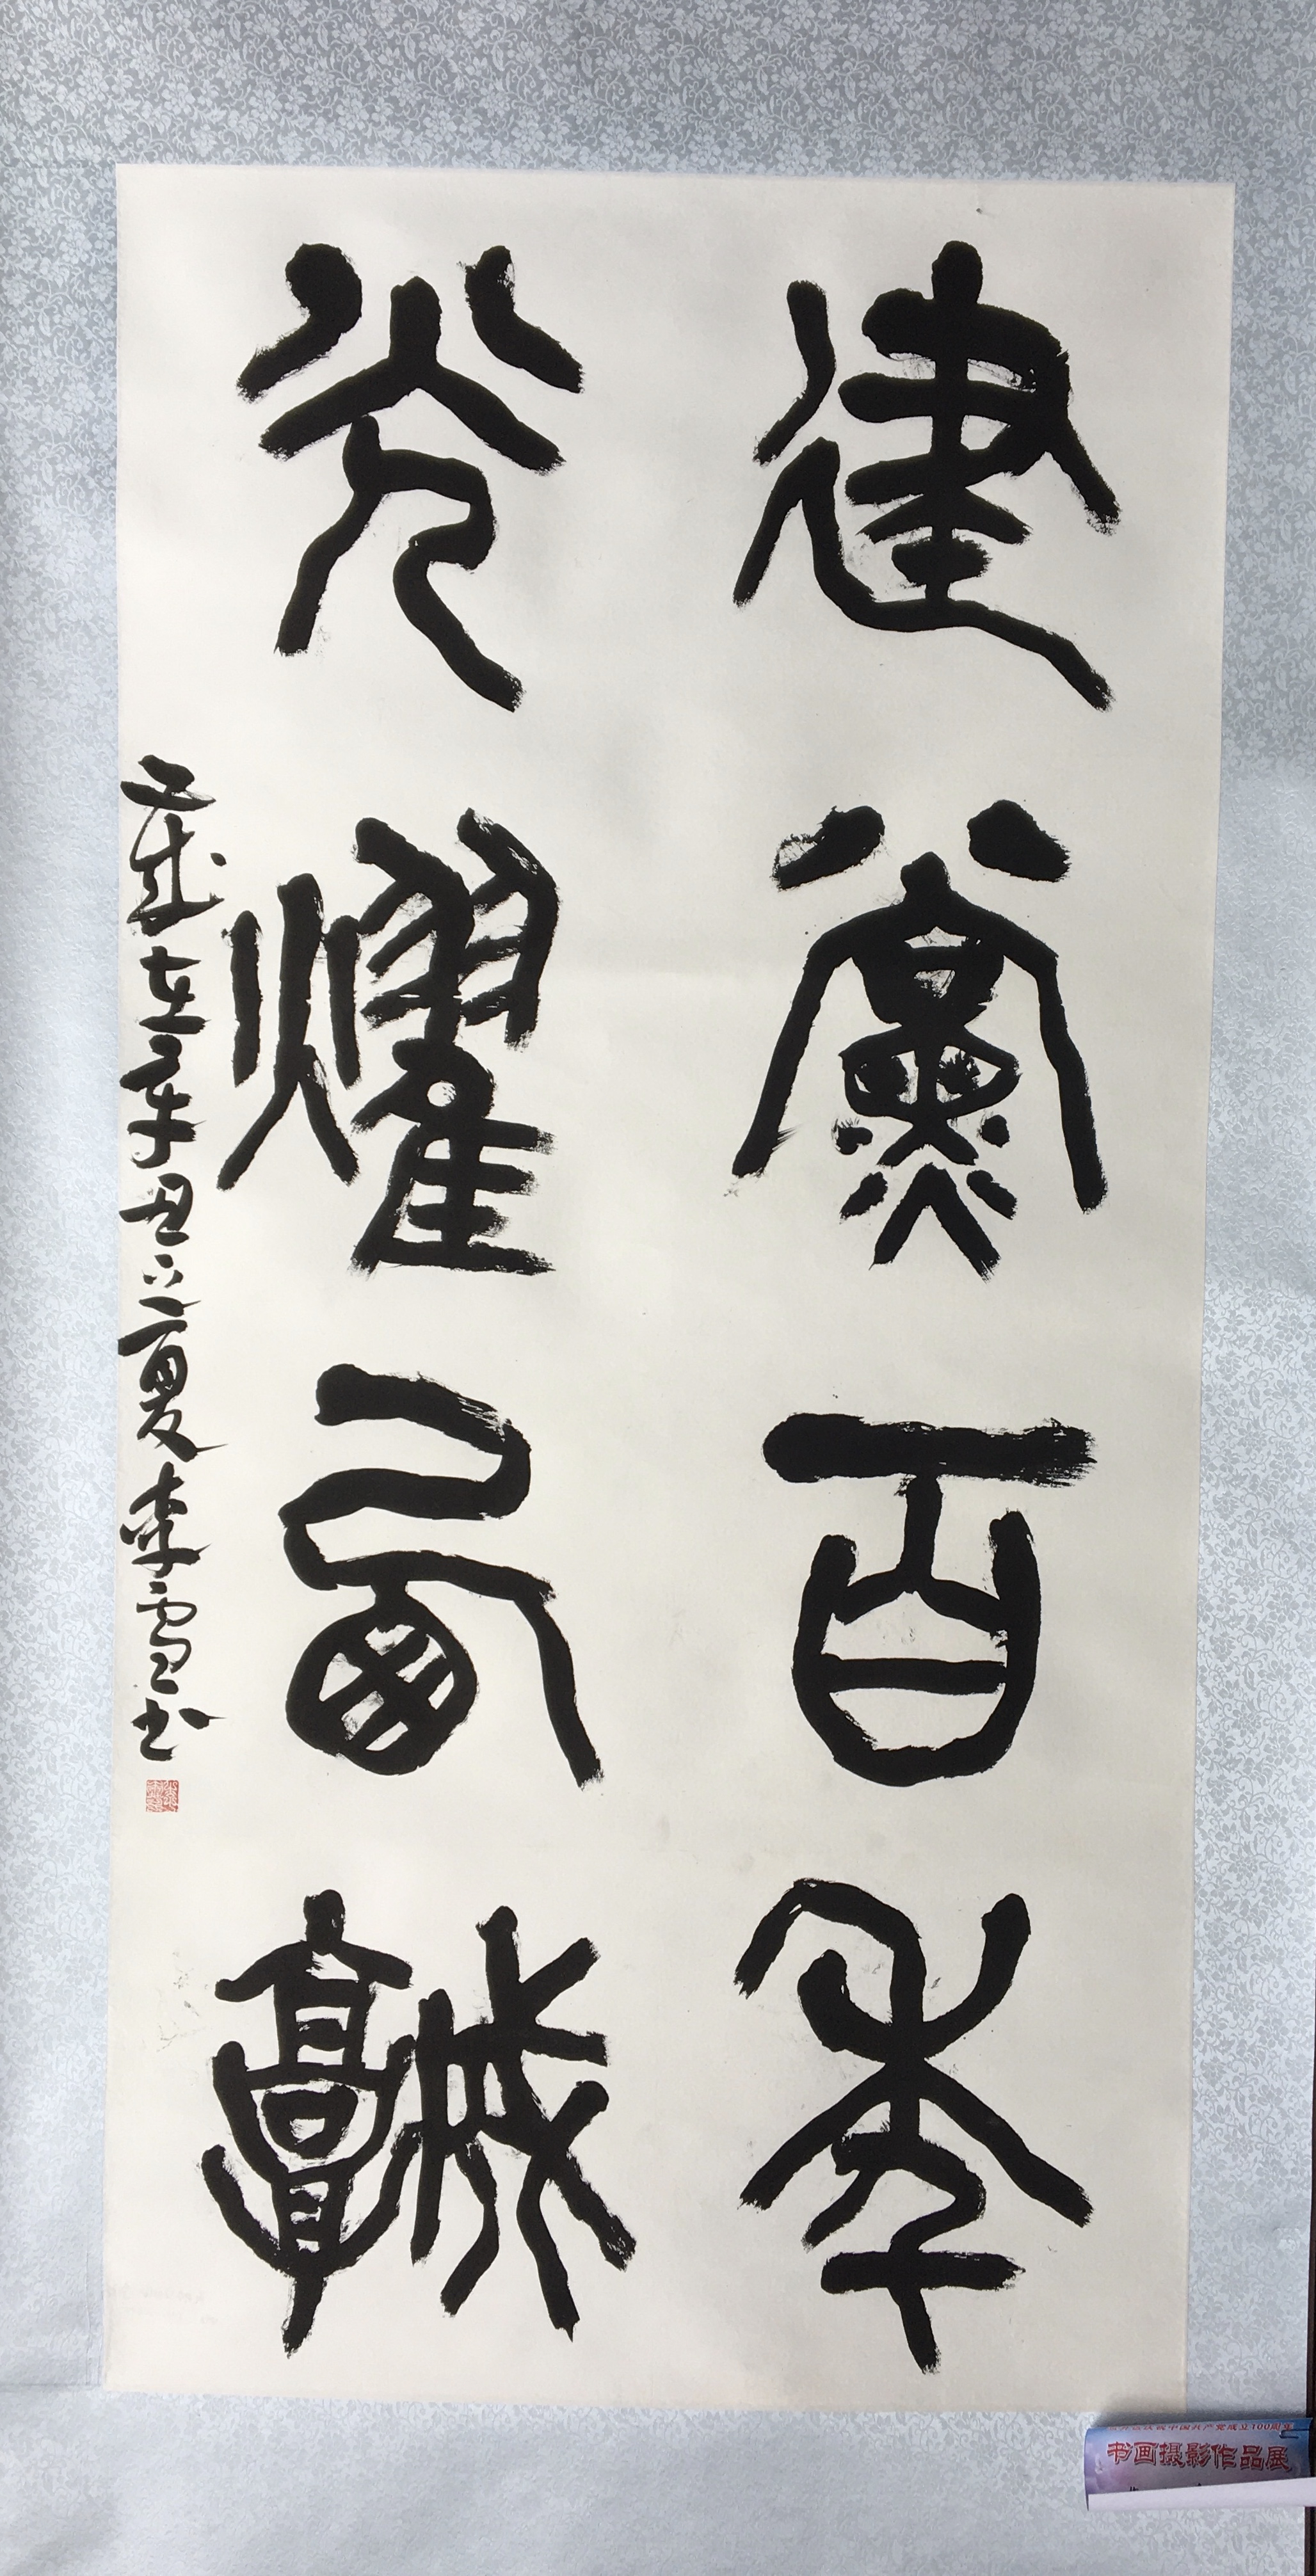 建黨百年
光燿西域
歲在辛丑立夏李雪书
祝中国共产党成立100周年
书画摄影作品展